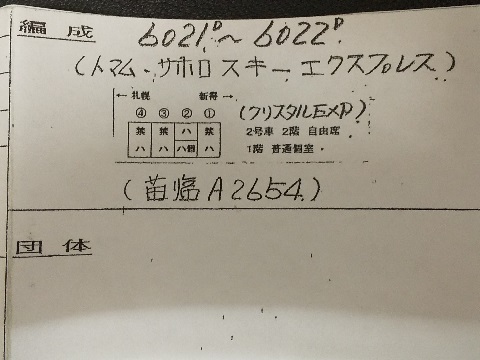 編成 6021D〜6022D
(トマム・サホロスキーエクスプレス)
← 札幌 新得 →
④ ③ ② ① (クリスタルEXP)
禁 禁 ハ 禁 2号車 2階 自由席
ハ ハ ハ個 ハ 1階 普通個室
(苗 A2654)
団体